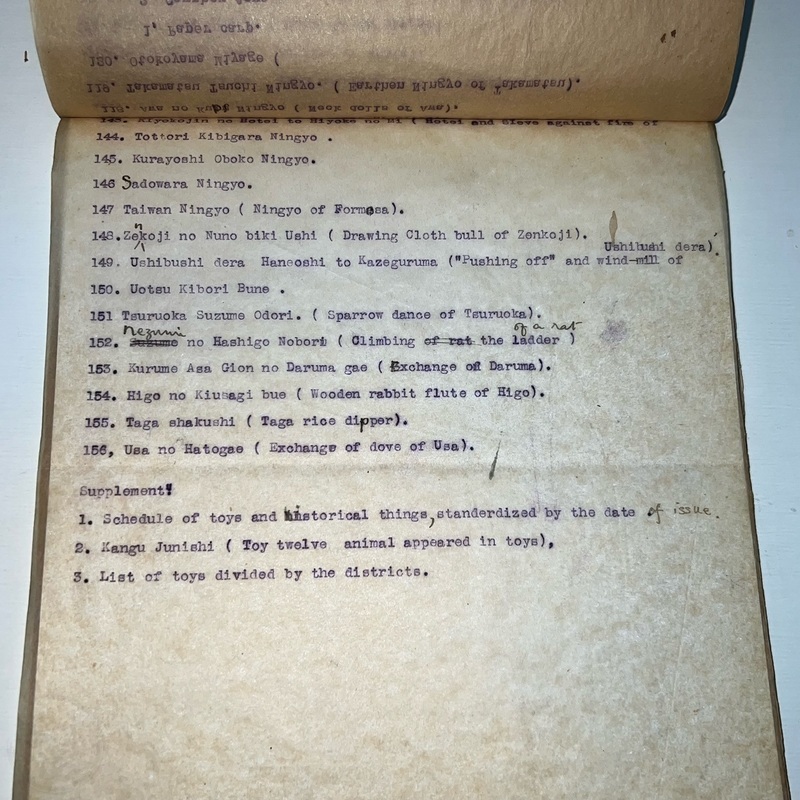 119. Takamatsu Tsuchi Ningyo. ( Earthen Ningyo of Takamatsu).
120. Otokoyama Miyage (
1. Paper carp.
143. Kiyokojin no Hotei to Hiyoke no mi ( Hotei and Sieve against fire of
144. Tottori Kibigara Ningyo .
145. Kurayoshi Oboko Ningyo.
146 Sadowara Ningyo.
147 Taiwan Ningyo ( Ningyo of Formosa).
148.Zenkoji no Nuno biki Ushi ( Drawing Cloth bull of Zenkoji).
Ushibushi dera).
149. Ushibushi dera Haneoshi to Kazeguruma ("Pushing off" and wind-mill of
150. Uotsu Kibori Bune .
151 Tsuruoka Suzume Odori. ( Sparrow dance of Tsuruoka).
nezumi of a rat
152. Suzume no Hashigo Nobori ( Climbing of rat the ladder )
153. Kurume Asa Gion no Daruma gae ( Exchange of Daruma).
154. Higo no Kiusagi bue ( Wooden rabbit flute of Higo).
155. Taga shakushi ( Taga rice dipper).
156, Usa no Hatogae ( Exchange of dove of Usa).
Supplement:
1. Schedule of toys and historical things, standerdized by the date of issue.
2. Kangu Junishi ( Toy twelve animal appeared in toys),
3. List of toys divided by the districts.